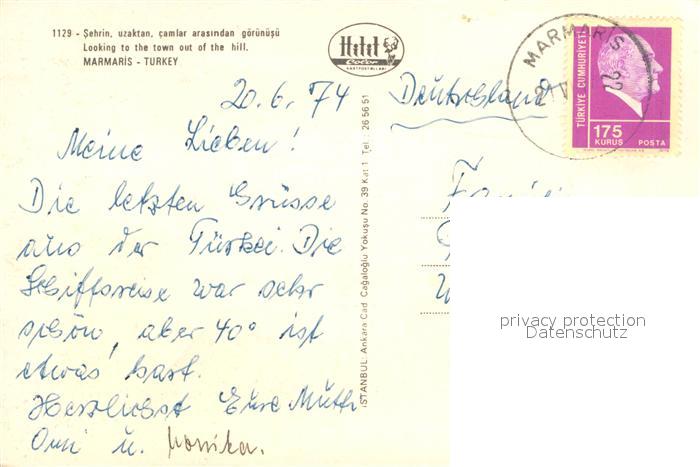 1129 - Şehrin, uzaktan, çamlar arasından görünüşü
Looking to the town out of the hill.
MARMARİS - TURKEY
Hitit
Color
KARTPOSTALLARI
MARMARİS
TÜRKİYE CUMHURİYETİ
175
KURUŞ POSTA
20.6.74
Meine Lieben!
Die letzten Grüsse
aus der Türkei. Die
Schiffsreise war sehr
schön, aber 40° ist
etwas hart.
Herzlichst Eure Mutti
Omi u. Monika.
İSTANBUL Ankara Cad. Cağaloğlu Yokuşu No. 39 Kat 1 Tel.: 26 56 51
Deutschland
privacy protection
Datenschutz